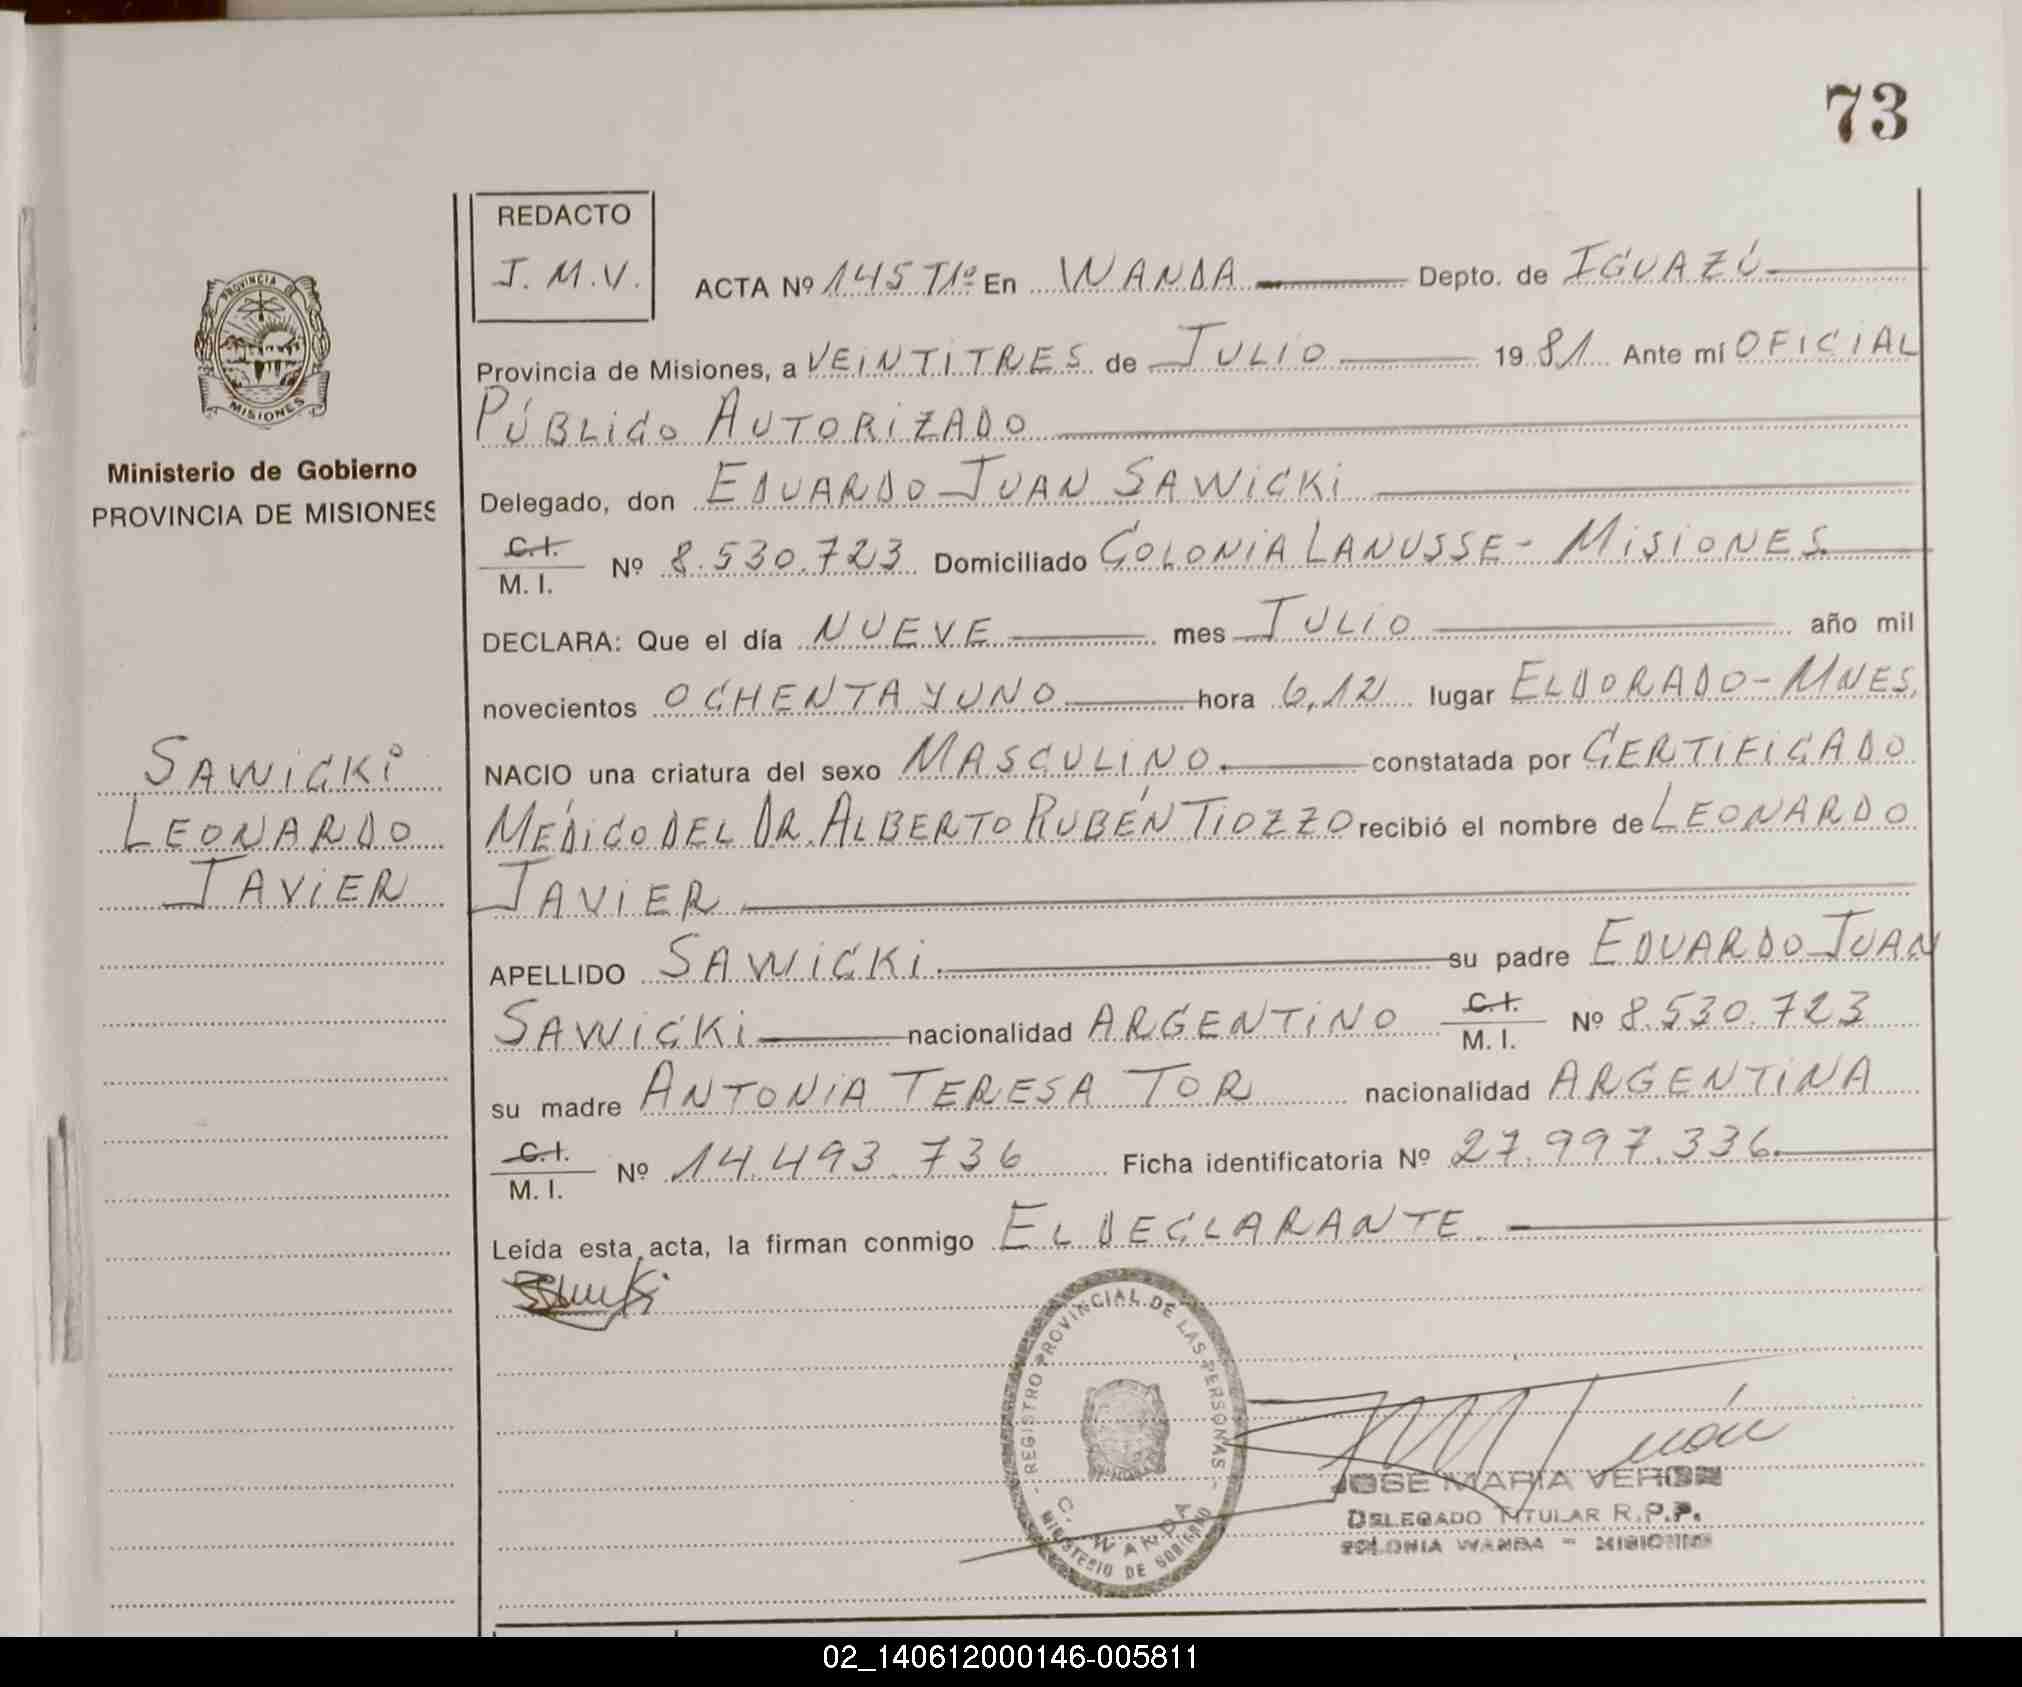 73
REDACTO
J. M. V.
ACTA Nº 145 T1º En WANDA Depto. de IGUAZÚ
Provincia de Misiones, a VEINTITRES de JULIO 1981 Ante mí OFICIAL
PÚBLICO AUTORIZADO
Delegado, don EDUARDO JUAN SAWICKI
C.I.
M. I. Nº 8.530.723 Domiciliado COLONIA LANUSSE - MISIONES
DECLARA: Que el día NUEVE mes JULIO año mil
novecientos OCHENTA Y UNO hora 6,12 lugar ELDORADO - MNES.
NACIO una criatura del sexo MASCULINO. constatada por CERTIFICADO
MÉDICO DEL DR. ALBERTO RUBÉN TIOZZO recibió el nombre de LEONARDO
JAVIER
APELLIDO SAWICKI. su padre EDUARDO JUAN
SAWICKI nacionalidad ARGENTINO C.I.
M. I. Nº 8.530.723
su madre ANTONIA TERESA TOR nacionalidad ARGENTINA
C.I.
M. I. Nº 14.493.736 Ficha identificatoria Nº 27.997.336.
Leída esta acta, la firman conmigo EL DECLARANTE.
PROVINCIA DE
MISIONES
Ministerio de Gobierno
PROVINCIA DE MISIONES
SAWICKI
LEONARDO
JAVIER
REGISTRO PROVINCIAL DE LAS PERSONAS
C. WANDA
MINISTERIO DE GOBIERNO
JOSE MARIA VERON
DELEGADO TITULAR R.P.P.
COLONIA WANDA - MISIONES
02_140612000146-005811